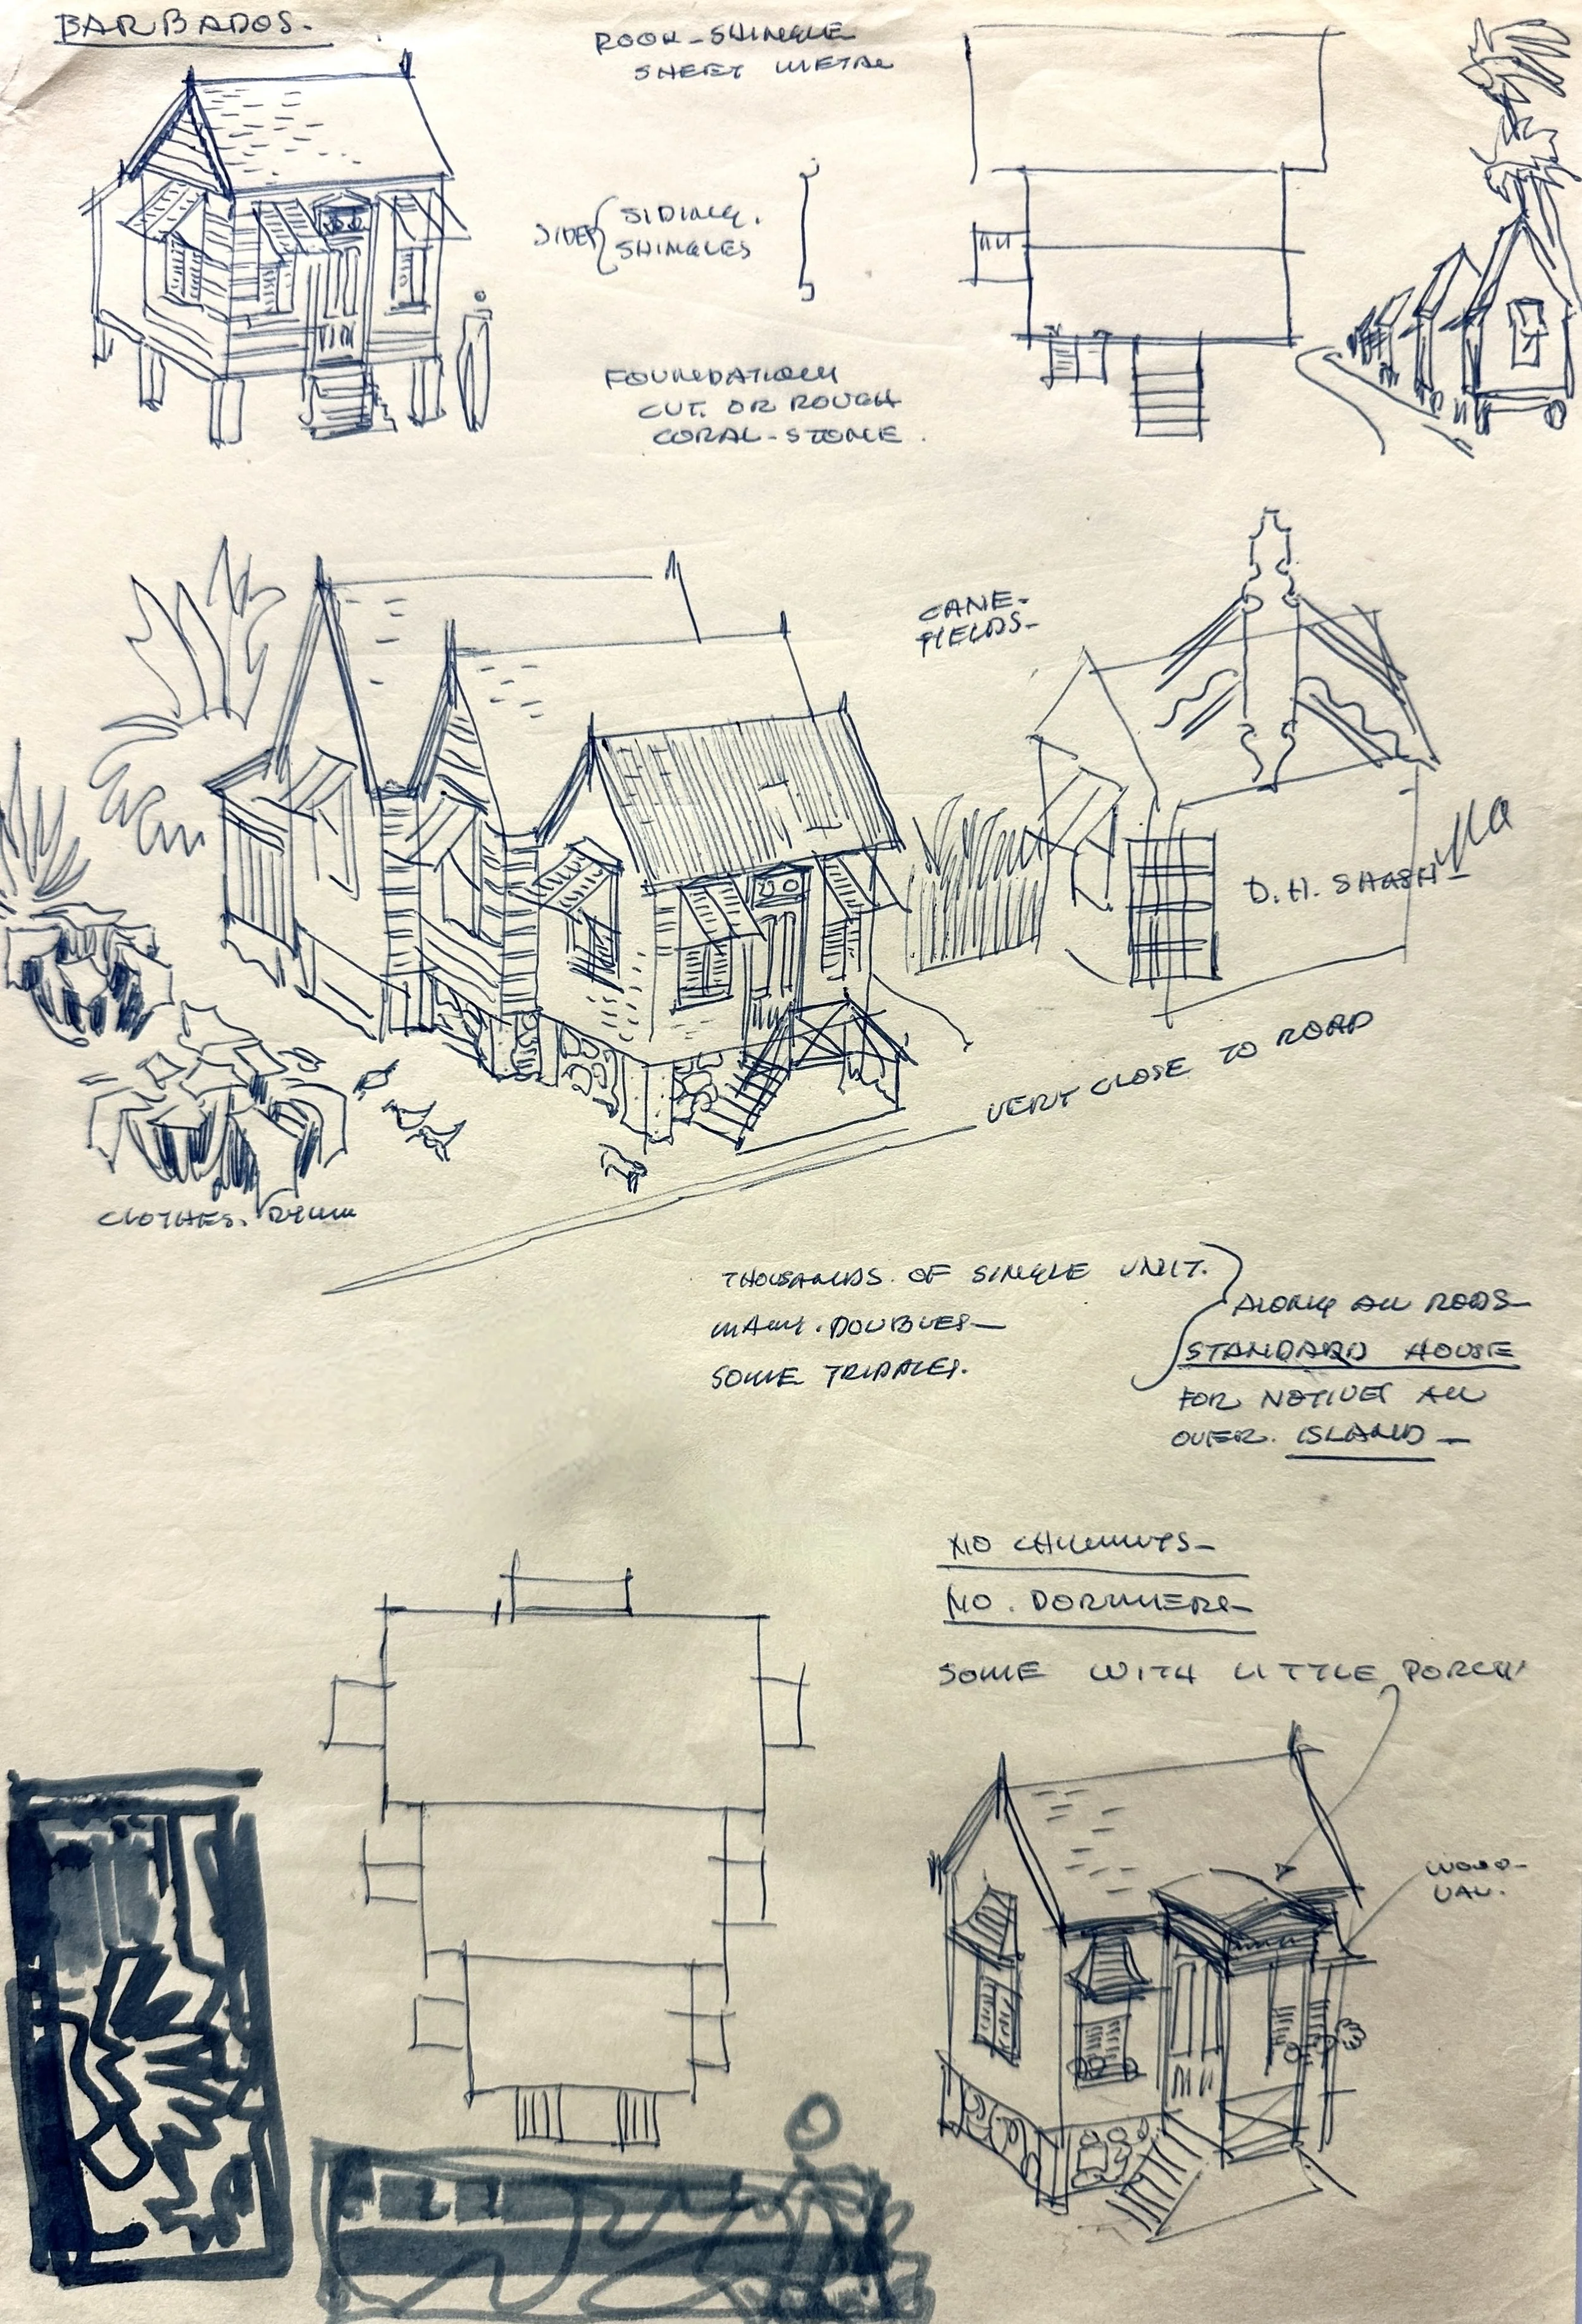 BARBADOS.
ROOF-SHINGLE
SHEET METAL
SIDES { SIDING.
SHINGLES
FOUNDATION
CUT. OR ROUGH
CORAL-STONE.
CANE-
FIELDS-
D. H.
VERY CLOSE TO ROAD
CLOTHES.
THOUSANDS. OF SINGLE UNIT.
MANY. DOUBLES-
SOME TRIPPLES.
ALONG ALL RODS-
STANDARD HOUSE
FOR NATIVES ALL
OVER. ISLAND-
NO CHIMNEYS-
NO. DORMERS-
SOME WITH LITTLE PORCH
WOOD-